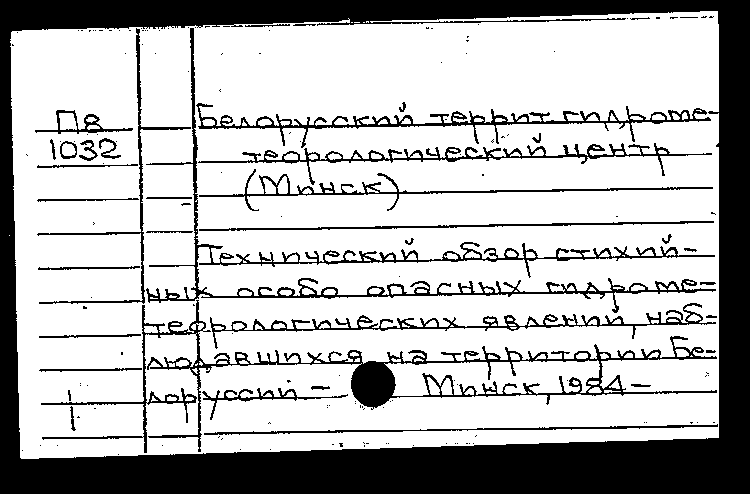 Пв Белорусский террит. гидроме-
1032 теорологический центр
(Минск).
Технический обзор стихий-
ных особо опасных гидроме-
теорологических явлений, наб-
людавшихся на территории Бе-
лоруссии - Минск, 1984 -